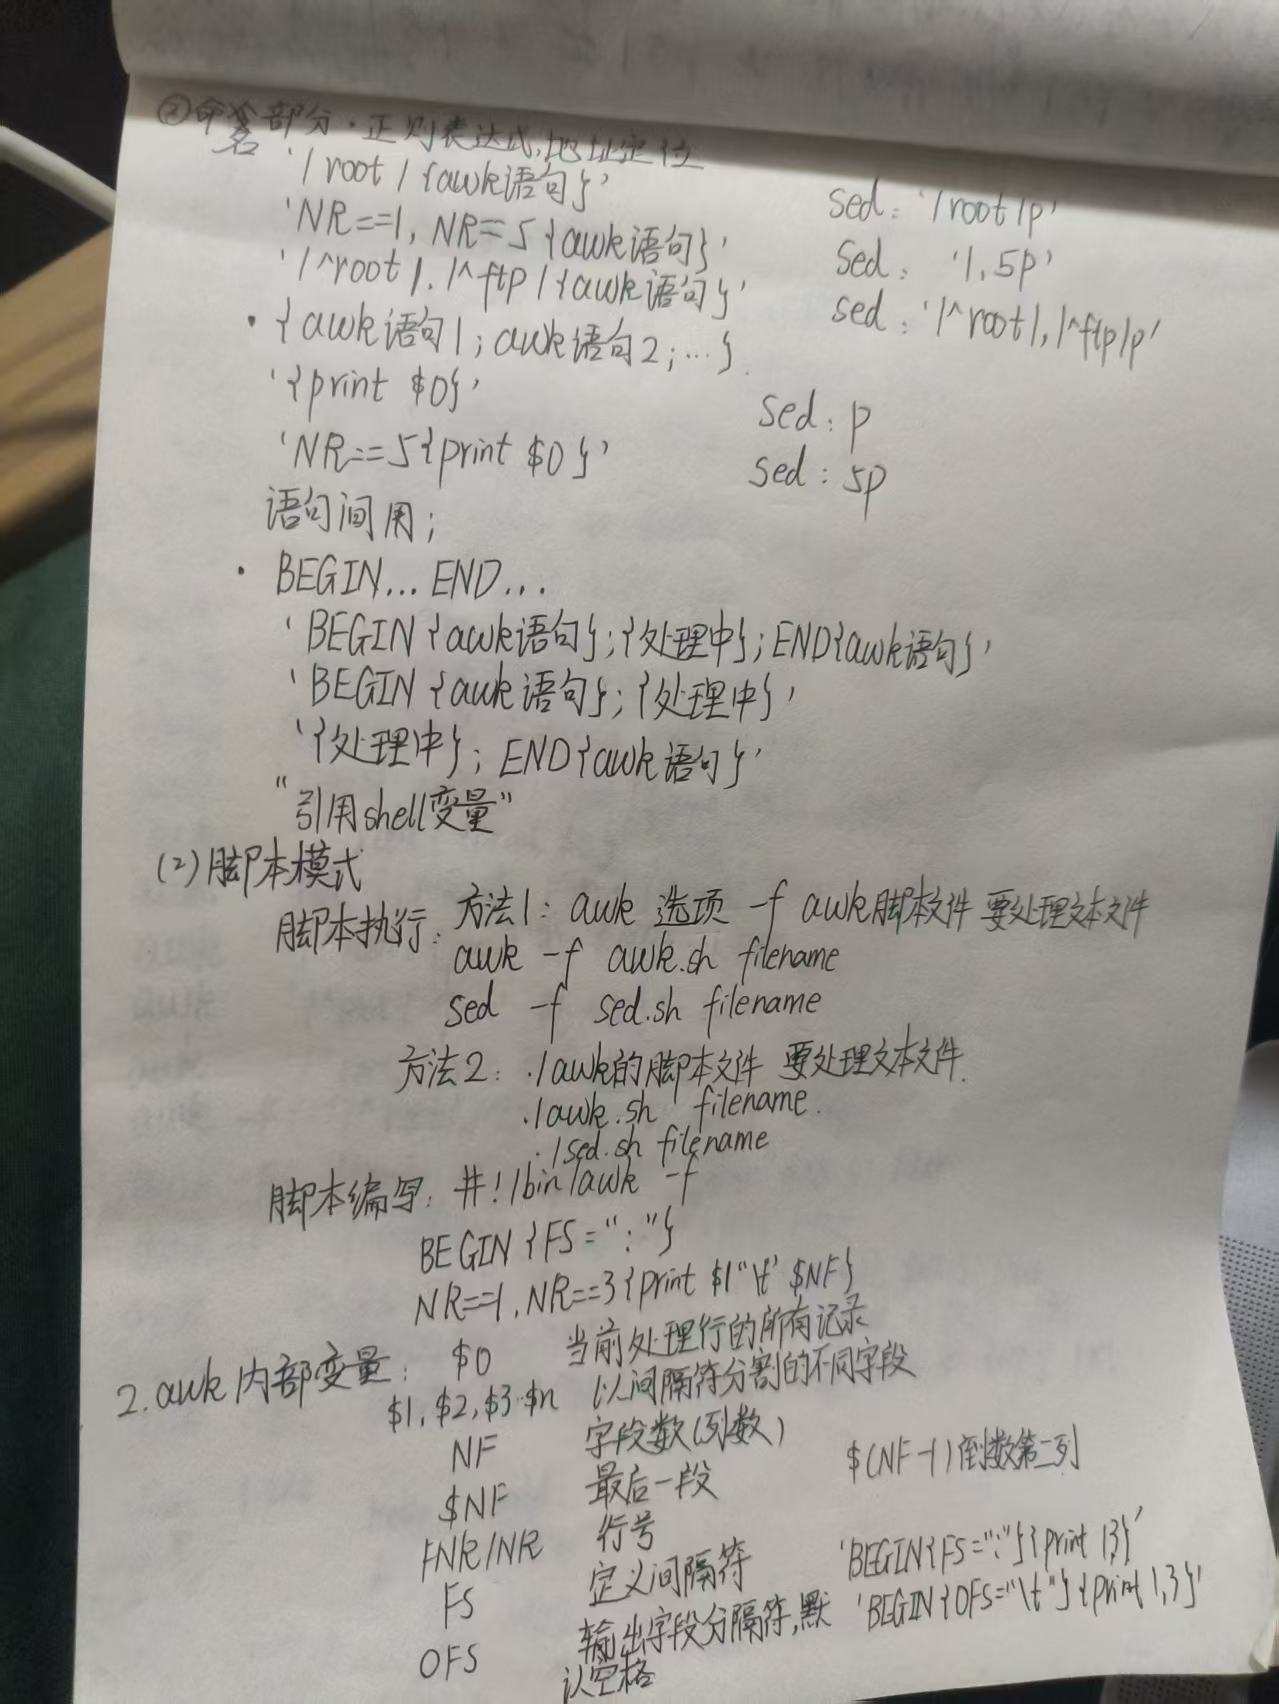 ②命名部分·正则表达式,地址定位
'/root/{awk语句}' sed: '/root/p'
'NR==1, NR==5{awk语句}' sed: '1,5p'
'/^root/,/^ftp/{awk语句}' sed: '/^root/,/^ftp/p'
·{awk语句1;awk语句2;…}.
'{print $0}' sed: p
'NR==5{print $0}' sed: 5p
语句间用;
· BEGIN... END...
'BEGIN{awk语句};{处理中};END{awk语句}'
'BEGIN{awk语句};{处理中}'
'{处理中};END{awk语句}'
"引用shell变量"
(2)脚本模式
脚本执行: 方法1: awk 选项 -f awk脚本文件 要处理文本文件
awk -f awk.sh filename
sed -f sed.sh filename
方法2: ./awk的脚本文件 要处理文本文件.
./awk.sh filename.
./sed.sh filename
脚本编写: #!/bin/awk -f
BEGIN{FS=":"}
NR==1,NR==3{print $1"\t" $NF}
2.awk内部变量: $0 当前处理行的所有记录
$1,$2,$3..$n 以间隔符分割的不同字段
NF 字段数(列数)
$NF 最后一段 $(NF-1)倒数第二列
FNR/NR 行号
FS 定义间隔符 'BEGIN{FS=":"}{print 1,3}'
OFS 输出字段分隔符,默 'BEGIN{OFS="\t"}{print 1,3}'
认空格